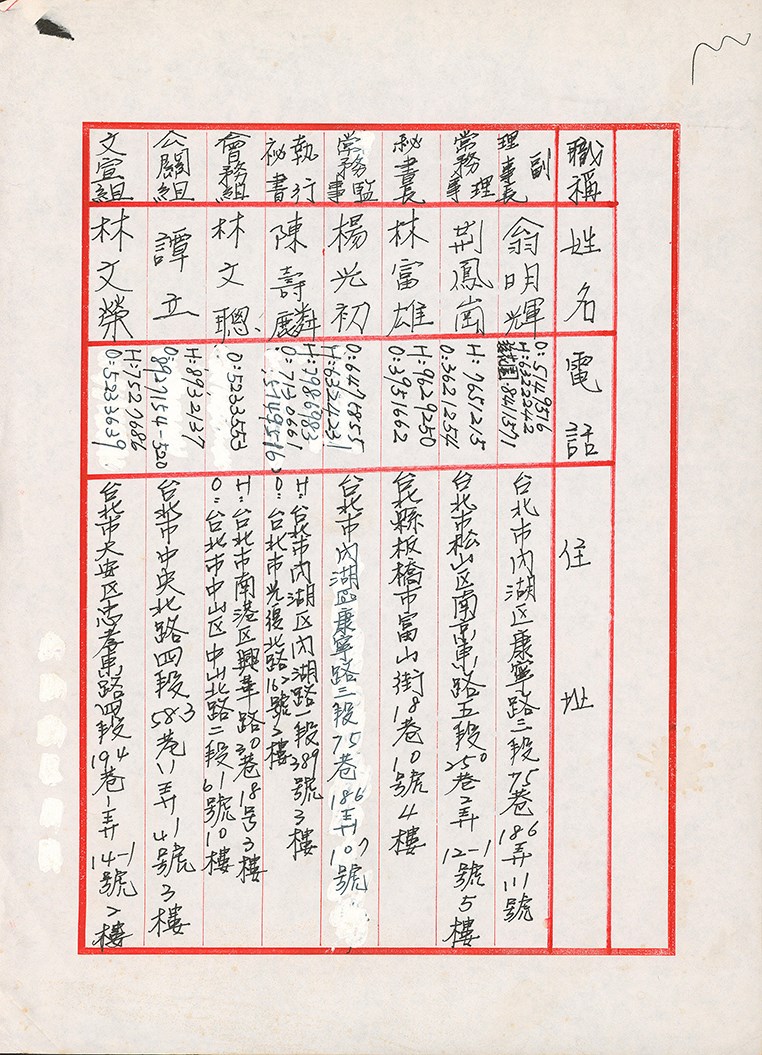 職稱
姓名
電話
住址
副理事長
翁明輝
O:5149516
H:6322242
8941571
台北市內湖区康寧路三段75巷186弄111號
常務理事
荆鳳崗
H:7651215
O:3621254
台北市松山区南京東路五段250巷2弄12-1號5樓
秘書長
林富雄
H:9629250
O:3951662
台北縣板橋市富山街18巷10號4樓
常務監事
楊光初
O:6478755
H:6324231
台北市內湖区康寧路三段75巷186弄107號
執行祕書
陳壽麟
H:7986983
O:7130661
(5149516)
H:台北市內湖区內湖路一段389號3樓
O:台北市光復北路162號2樓
會務組
林文聰
O:5233553
H:台北市南港区興華路30巷18号3樓
O:台北市中山区中山北路二段61號10樓
公關組
譚立
H:8932237
O:8927154-520
台北市中央北路四段583巷11弄41號3樓
文宣組
林文榮
H:7527686
O:5233639
台北市大安区忠孝東路四段194巷1弄14-1號2樓